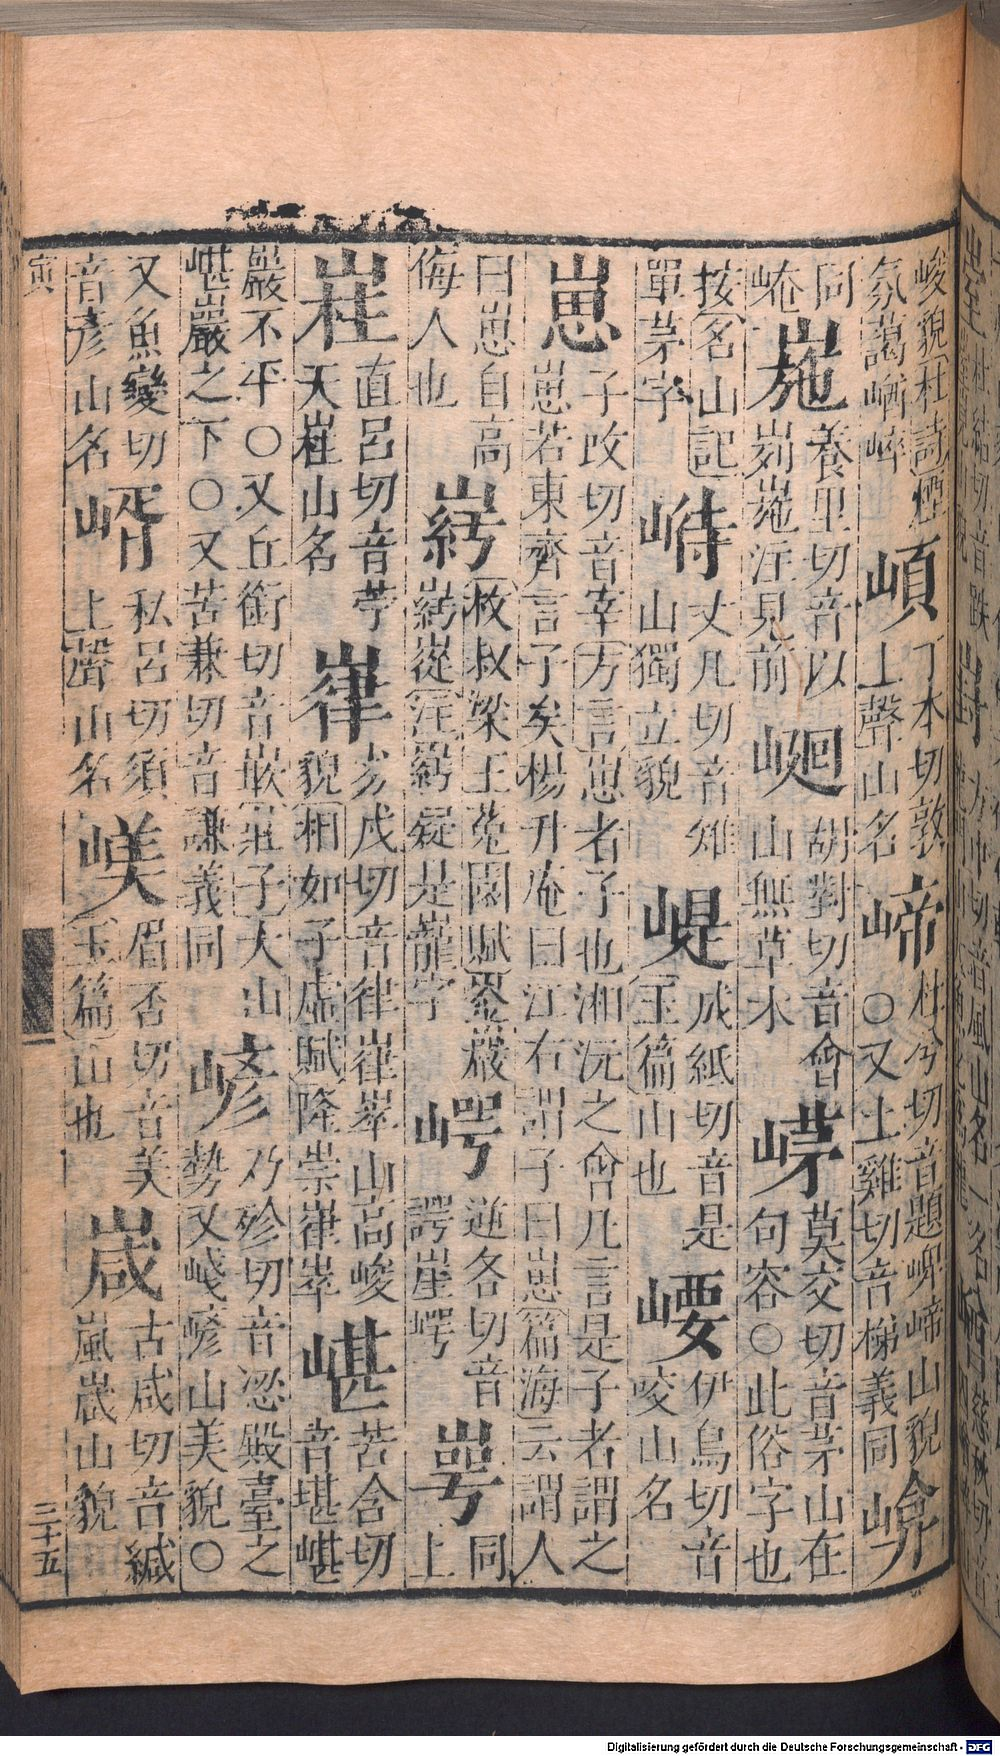 峻貌杜詩煙氛藹崷崒 丁本切敦上聲山名 崹 杜兮切音題崥崹山貌○又土雞切音梯義同
同崦 崺 養里切音以峛崺注見前 胡對切音會山無草木 莫交切音茅山在句容○此俗字也
按名山記單茅字 丈几切音雉山獨立貌 崼 成紙切音是玉篇山也 崾 伊鳥切音咬山名
崽 子改切音宰方言崽者子也湘沅之會凡言是子者謂之崽若東齊言子矣楊升庵曰江右謂子曰崽篇海云謂人
曰崽自高侮人也 枚叔梁王菟園賦崟巖嵸注疑是巃字 崿 逆各切音諤崖崿 同上
直呂切音苧天山名 嵂 劣戌切音律嵂崒山高峻貌相如子虛賦隆崇嵂崒 嵁 苦含切音堪嵁
巖不平○又丘銜切音嵌莊子大山嵁巖之下○又苦兼切音謙義同 嵃 乃殄切音涊殿臺之勢又嶘嵃山美貌○
又魚變切音彥山名 私呂切須上聲山名 嵄 眉否切音美玉篇山也 嵅 古咸切音緘嵐嵅山貌
寅 三十五
Digitalisierung gefördert durch die Deutsche Forschungsgemeinschaft - DFG